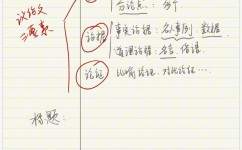 分论点：多个
议论文
三要素
论据
事实论据：名人事例、数据
道理论据：名言、俗语
论证
比喻论证、对比论证…
标题：